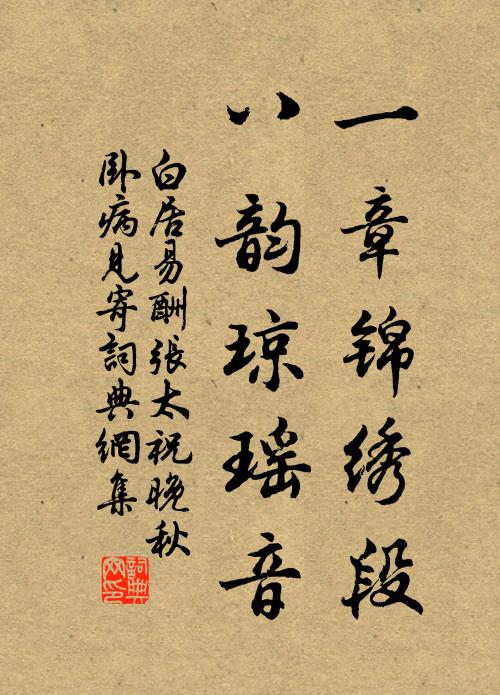 一章锦绣段
八韵琼瑶音
白居易酬張太祝晚秋
卧病見寄詞典網集
詞典
网印